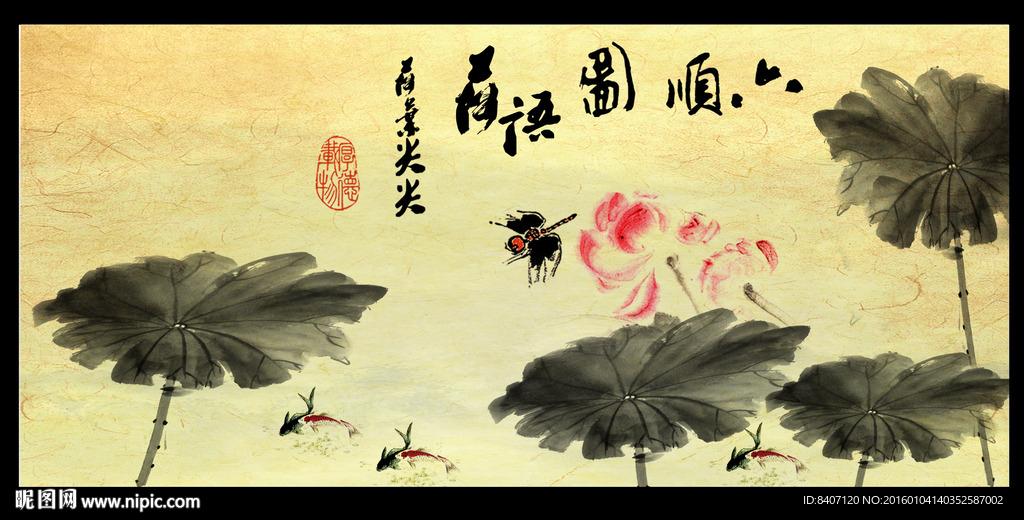 六順圖
荷語
荷葉尖尖
厚德載物
昵图网 www.nipic.com
ID:8407120 NO:20160104140352587002